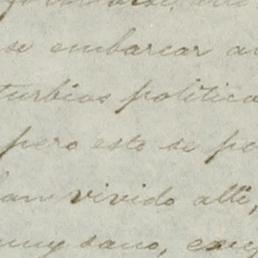 se embarcar a
turbias politica
pero esto se pe
han vivido alli,
muy sano, exce